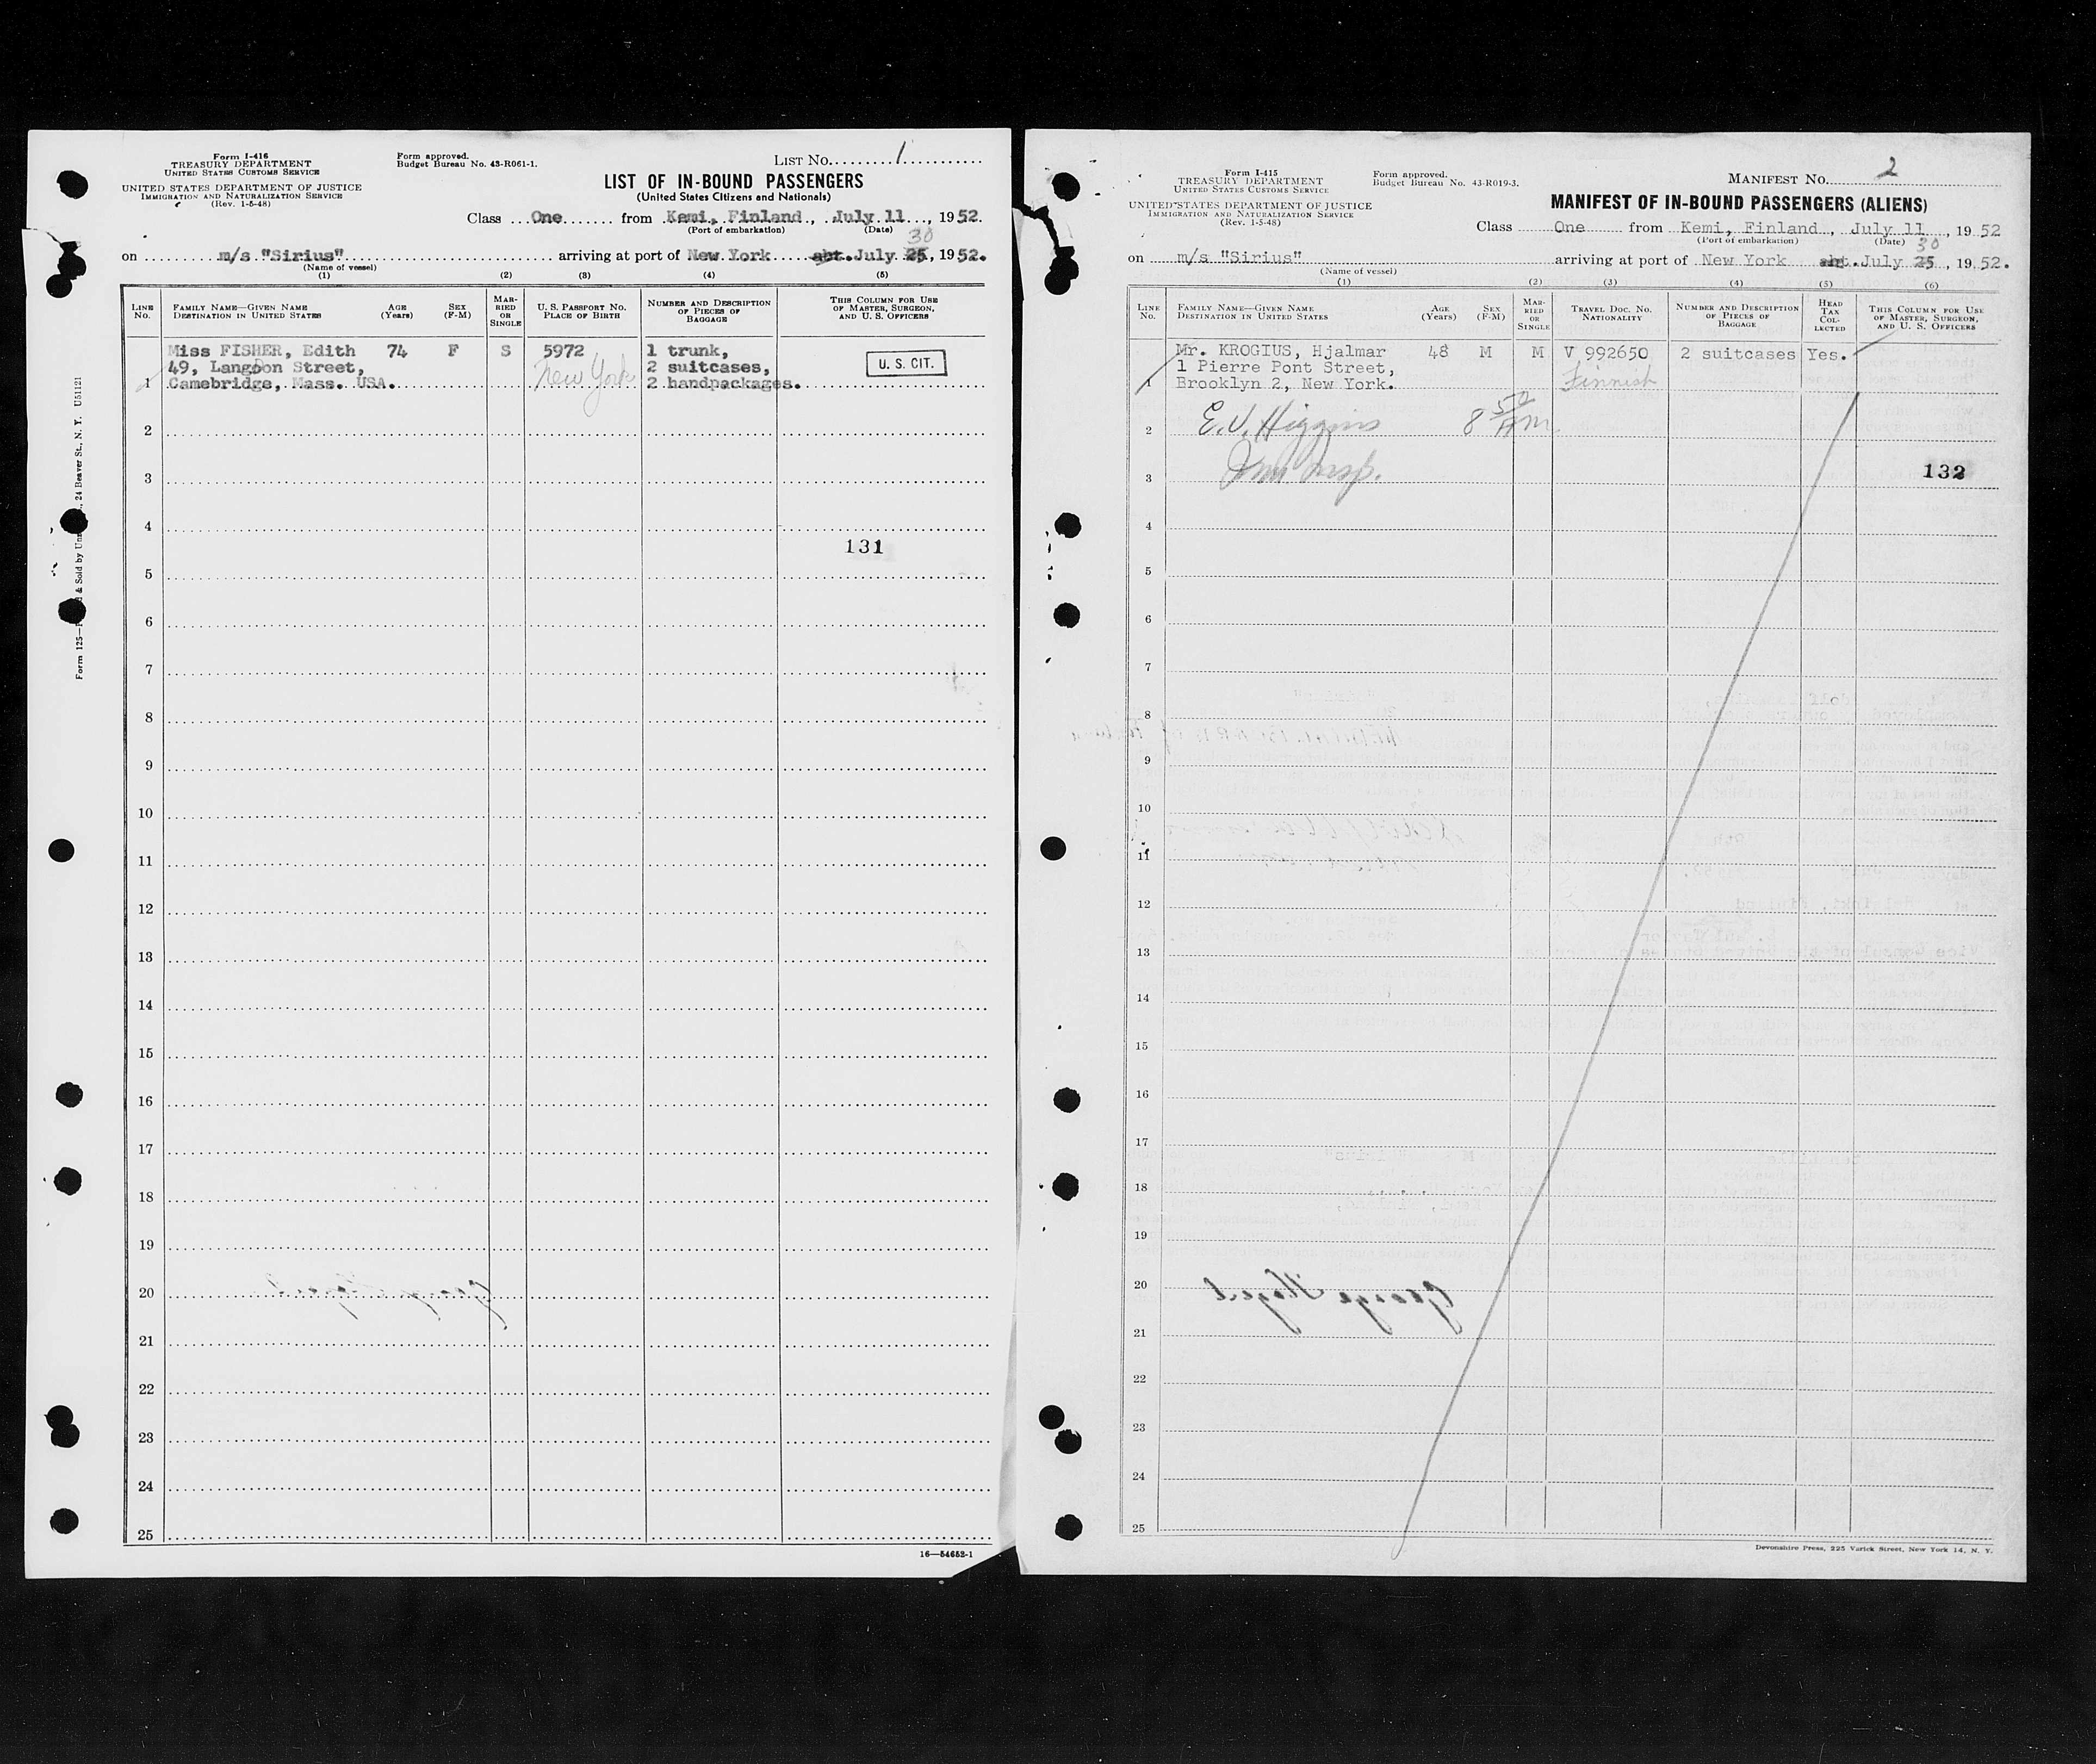 Form I-416
TREASURY DEPARTMENT
UNITED STATES CUSTOMS SERVICE
UNITED STATES DEPARTMENT OF JUSTICE
IMMIGRATION AND NATURALIZATION SERVICE
(Rev. 1-5-48)
Form approved.
Budget Bureau No. 43-R061-1.
LIST NO. 1
LIST OF IN-BOUND PASSENGERS
(United States Citizens and Nationals)
Class One from Kemi, Finland, July 11, 1952.
(Port of embarkation) (Date)
30
on m/s "Sirius" arriving at port of New York abt. July 25, 1952.
(Name of vessel)
(1) (2) (3) (4) (5)
LINE No. FAMILY NAME—GIVEN NAME DESTINATION IN UNITED STATES AGE (Years) SEX (F-M) MARRIED OR SINGLE U. S. PASSPORT NO. PLACE OF BIRTH NUMBER AND DESCRIPTION OF PIECES OF BAGGAGE THIS COLUMN FOR USE OF MASTER, SURGEON, AND U. S. OFFICERS
Miss FISHER, Edith 74 F S 5972 1 trunk,
49, Langdon Street, New York 2 suitcases, U. S. CIT.
1 Camebridge, Mass. USA. 2 handpackages.
2
3
4
131
5
6
7
8
9
10
11
12
13
14
15
16
17
18
19
20
21
22
23
24
25
16—54652-1
24 Beaver St., N. Y. U51121
Form 125— & Sold by
Form I-415
TREASURY DEPARTMENT
UNITED STATES CUSTOMS SERVICE
UNITED STATES DEPARTMENT OF JUSTICE
IMMIGRATION AND NATURALIZATION SERVICE
(Rev. 1-5-48)
Form approved.
Budget Bureau No. 43-R019-3.
MANIFEST NO. 2
MANIFEST OF IN-BOUND PASSENGERS (ALIENS)
Class One from Kemi, Finland, July 11, 1952
(Port of embarkation) (Date)
30
on m/s "Sirius" arriving at port of New York abt. July 25, 1952.
(Name of vessel)
(1) (2) (3) (4) (5) (6)
LINE No. FAMILY NAME—GIVEN NAME DESTINATION IN UNITED STATES AGE (Years) SEX (F-M) MARRIED OR SINGLE TRAVEL DOC. NO. NATIONALITY NUMBER AND DESCRIPTION OF PIECES OF BAGGAGE HEAD TAX COLLECTED THIS COLUMN FOR USE OF MASTER, SURGEON, AND U. S. OFFICERS
Mr. KROGIUS, Hjalmar 48 M M V 992650 2 suitcases Yes.
1 Pierre Pont Street, Finnish
1 Brooklyn 2, New York.
2 E. V. Higgins 8 50 AM
3 Imm Insp. 132
4
5
6
7
8
9
10
11
12
13
14
15
16
17
18
19
20
21
22
23
24
25
Devonshire Press, 225 Varick Street, New York 14, N. Y.